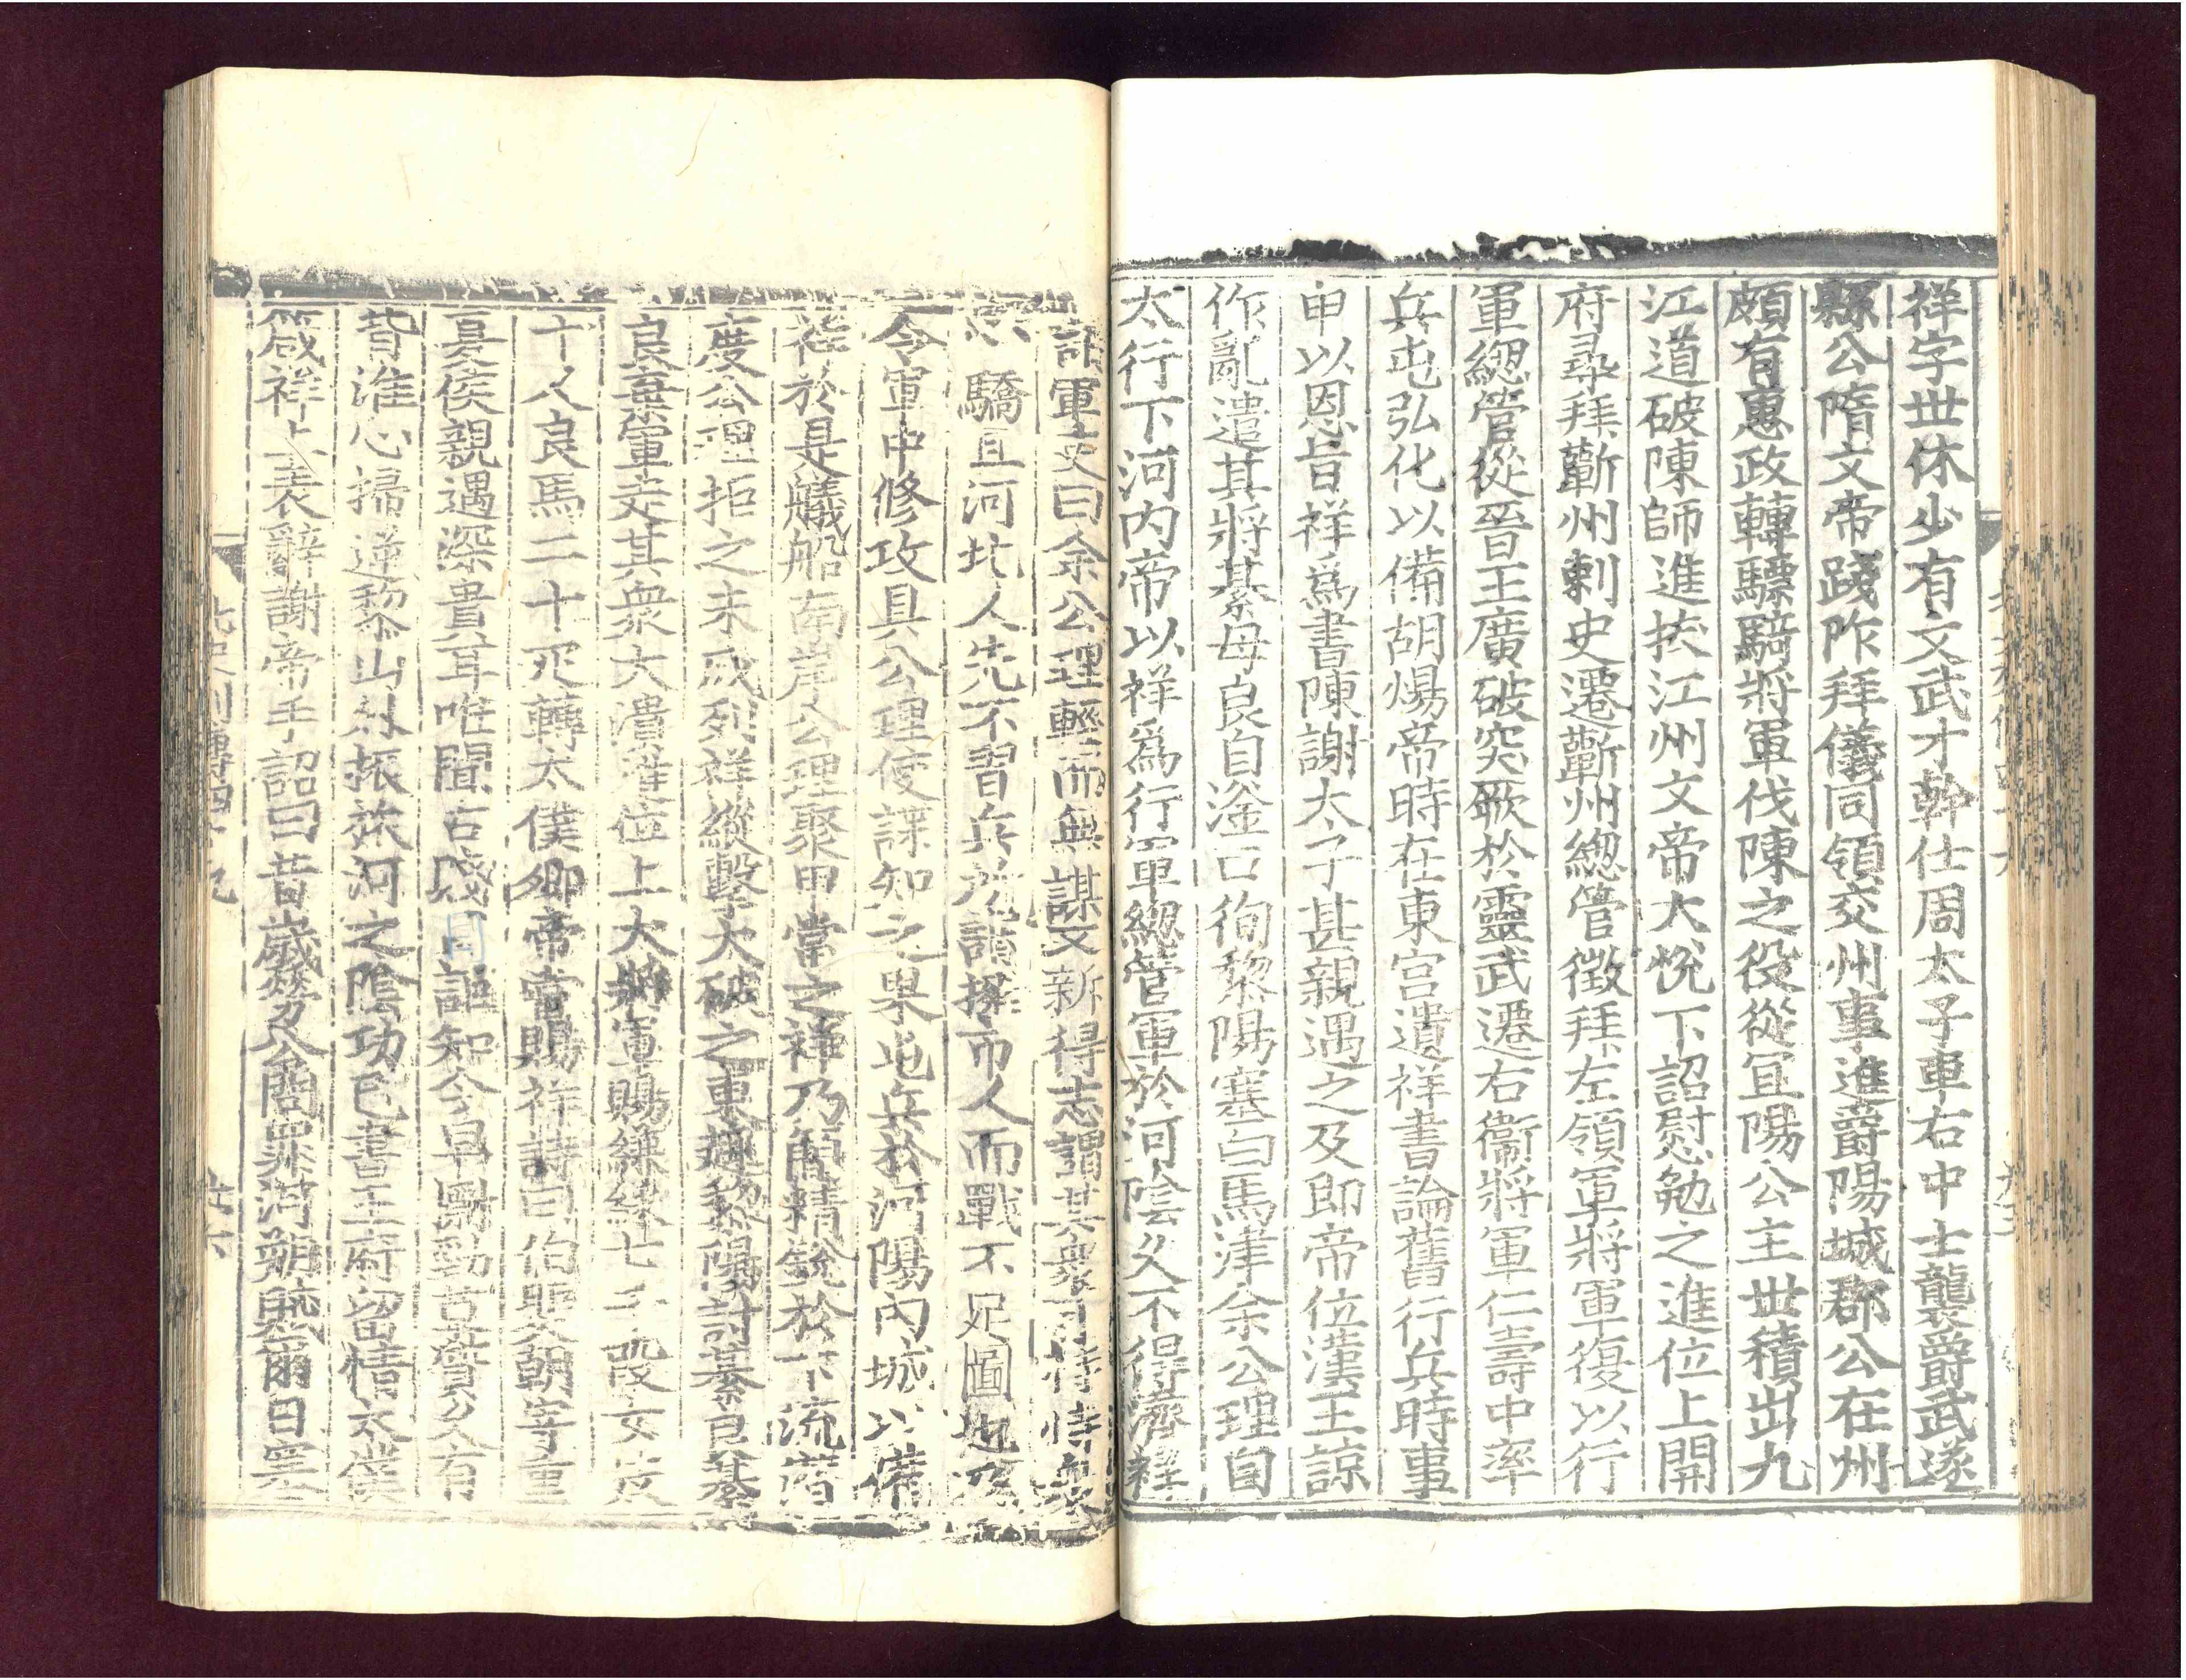 祥字世休少有文武才幹仕周太子車右中士襲爵武遂
縣公隋文帝踐阼拜儀同領交州事進爵陽城郡公在州
頗有惠政轉驃騎將軍伐陳之役從宜陽公王世積出九
江道破陳師進拔江州文帝大悅下詔慰勉之進位上開
府尋拜蘄州刺史遷蘄州緫管徵拜左領軍將軍復以行
軍緫管從晉王廣破突厥於靈武遷右衞將軍仁壽中率
兵屯弘化以備胡煬帝時在東宫遺祥書論舊行兵時事
申以恩旨祥爲書陳謝太子甚親遇之及即帝位漢王諒
作亂遣其將綦母良自滏口徇黎陽塞白馬津余公理自
太行下河内帝以祥爲行軍緫管軍於河陰久不得濟祥
謂軍吏曰余公理輕而無謀又新得志謂其衆可恃恃衆
必驕且河北人先不習兵所謂擁市人而戰不足圖也乃
令軍中修攻具公理使諜知之果屯兵於河陽内城以備
祥於是艤船南岸公理聚甲當之祥乃簡精銳於下流潛
度公理拒之未成列祥縱擊大破之東趣黎陽討綦良綦
良棄軍走其衆大潰進位上大將軍賜縑綵七千段女妓
十人良馬二十匹轉太僕卿帝嘗賜祥詩曰伯煚朝寄重
夏侯親遇深貴耳唯聞古賤目詎知今早摽勁草質久有
背淮心掃逆黎山外振旅河之陰功已書王府留情太僕
箴祥上表辭謝帝手詔曰昔歲勞公問罪河朔賊爾日塞
北史列傳四十九